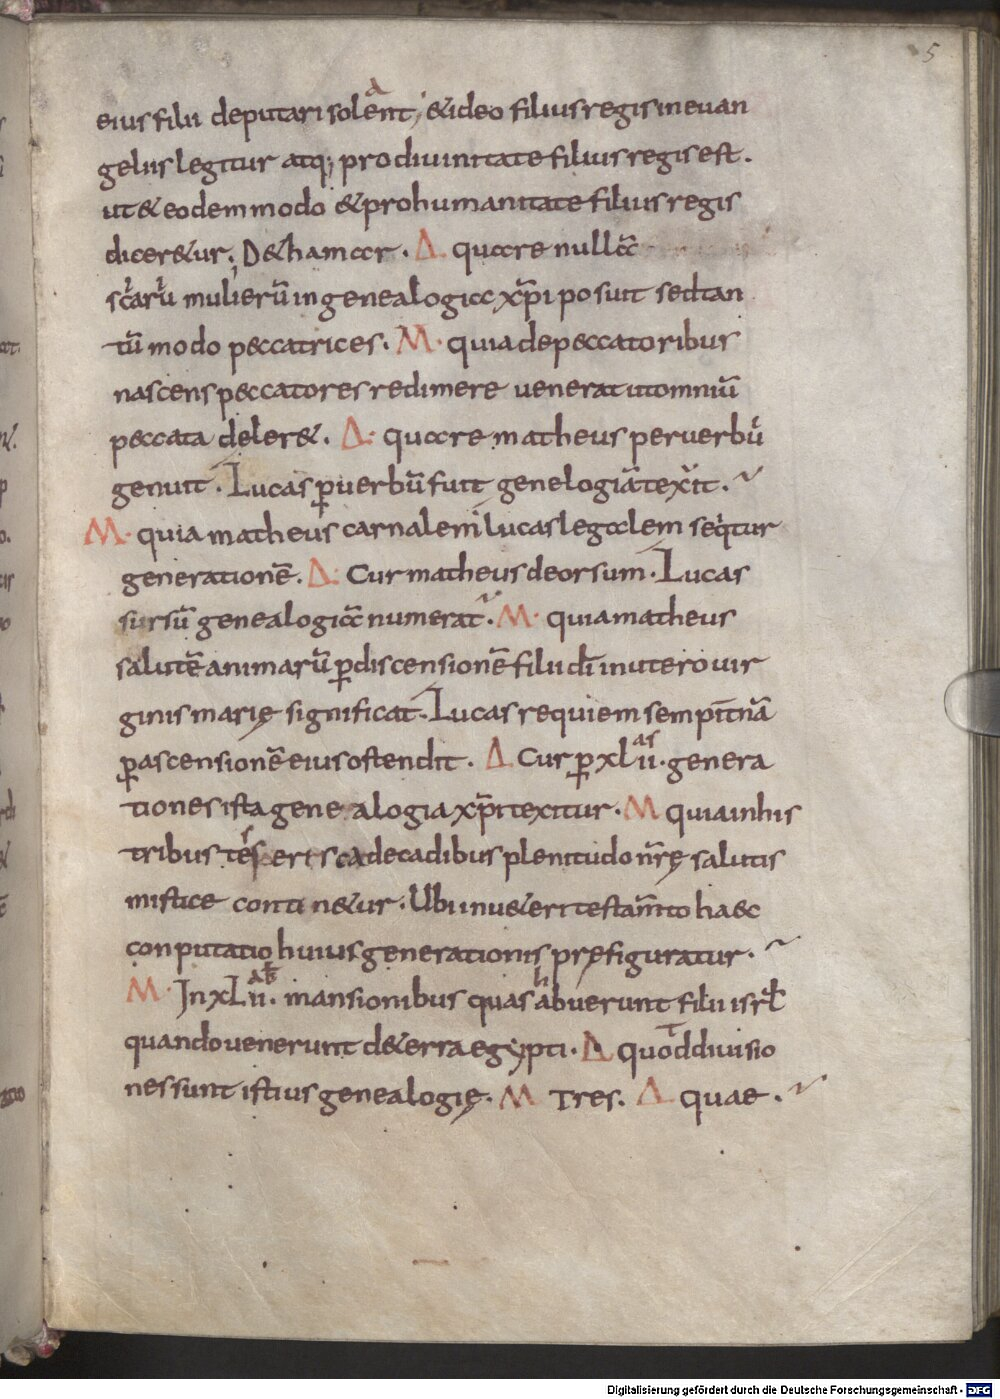 5
eius filii deputari solent, & ideo filius regis in euan
geliis legitur atq; pro diuinitate filius regis est.
ut & eodem modo & pro humanitate filius regis
dicer&ur; D& hamar. Δ. quare nullā
sc̄arū mulierū in genealogia xp̄i posuit sed tan
tū modo peccatrices. M. quia de peccatoribus
nascens peccatores redimere uenerat ut omniū
peccata deler&. Δ: quare matheus per uerbū
genuit. Lucas ꝑ uerbū fuit genelogiā texit.
M. quia matheus carnalem lucas legalem seqitur
generationē. Δ: Cur matheus deorsum. Lucas
sursū genealogiā numerat. M. quia matheus
salutē animarū ꝑ discensionē filii dī in utero uir
ginis marię significat. Lucas requiem sempitnā
ꝑ ascensionē eius ostendit. Δ Cur ꝑ xLii as genera
tiones ista genealogia xp̄i texitur. M quia in his
tribus tesseriscadecadibus plenitudo nr̄ę salutis
mistice contin&ur. Ubi in u&eri testam̄to haec
conputatio huius generationis pręfiguratur.
M. In xLii ab. mansionibus quas habuerunt filii isrl̄
quando uenerunt de terra egypti. Δ quot diuisio
nes sunt istius genealogię. M Tres. Δ quae.
Digitalisierung gefördert durch die Deutsche Forschungsgemeinschaft - DFG